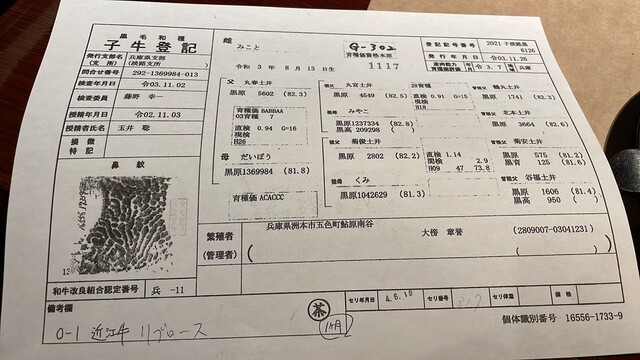 黒毛和種
子牛登記
雌
みこと
G-302
育種価資格本原
1117
令和 3 年 8 月 13 日生
登記記号番号 2021 子
6126
発行年月日 令03.11.26
令 3.7
発行支部名 (支所) 兵庫県支部 (淡路支所)
問合せ番号 292-1369984-013
検査年月日 令03.11.02
検査委員 藤野 幸一
授精年月日 令02.11.03
授精者氏名 玉井 聡
損徴特記
鼻紋
和牛改良組合認定番号 兵 -11
父 丸春土井
黒原 5602 (82.3)
育種価 BABBAA
03育種 7
直検 0.94 G=16
現検
H26
母 だいぼう
黒原1369984 (81.8)
育種価 ACACCC
丸宮土井
黒原 4549 (82.5)
みやこ
黒原1237334 (82.8)
黒高 209298
菊俊土井
黒原 2802 (82.2)
くみ
黒原1042629 (81.3)
直検 0.91 G=15
現検
H18
直検 1.14
間検 2.9
H09 47 73.8
鶴丸土井
黒原 1741 (82.3)
北本土井
黒原 3664 (82.6)
菊安土井
黒原 575 (81.2)
黒育 125 (81.6)
谷福土井
黒原 1606 (81.4)
黒高 950
繁殖者
(管理者)
兵庫県洲本市五色町鮎原南谷
大傍 章誉 (2809007-03041231)
備考欄
0-1 近江牛 リブロース
茶
セリ年月日
セリ番号
セリ体重
価格
個体識別番号 16556-1733-9